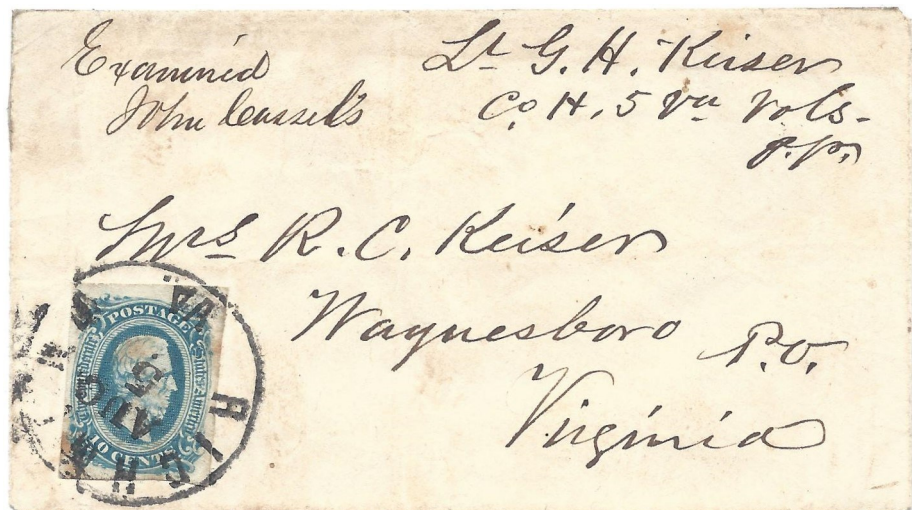 Examined
John Cassels
Lt G. H. Keiser
Co. H. 5 Va Vols.
P.P.
Mrs R. C. Keiser
Waynesboro P.O.
Virginia
POSTAGE
10 CENTS
RICHM
VA.
AUG
5